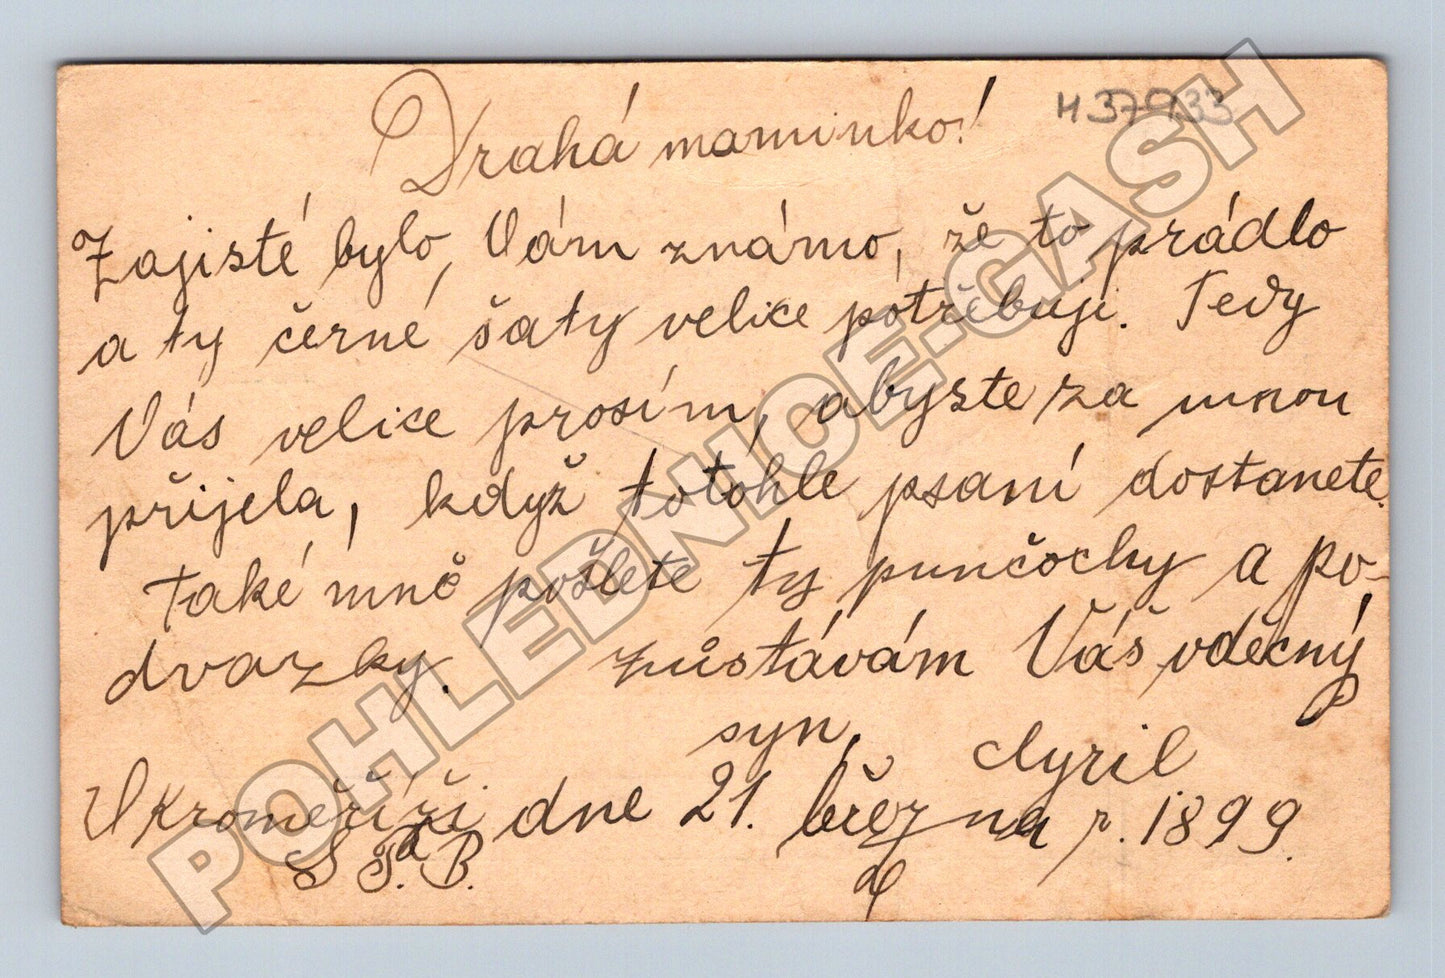 H 37933
Drahá maminko!
Zajisté bylo, Vám známo, že to prádlo
a ty černé šaty velice potřebuji. Tedy
Vás velice prosím, abyste za mnou
přijela, když totohle psaní dostanete.
Také mně pošlete ty punčochy a po-
dvazky. zůstávám Váš vděčný
syn, Cyril
V Kroměříži dne 21. března r. 1899.
POHLEDNICE-GASH